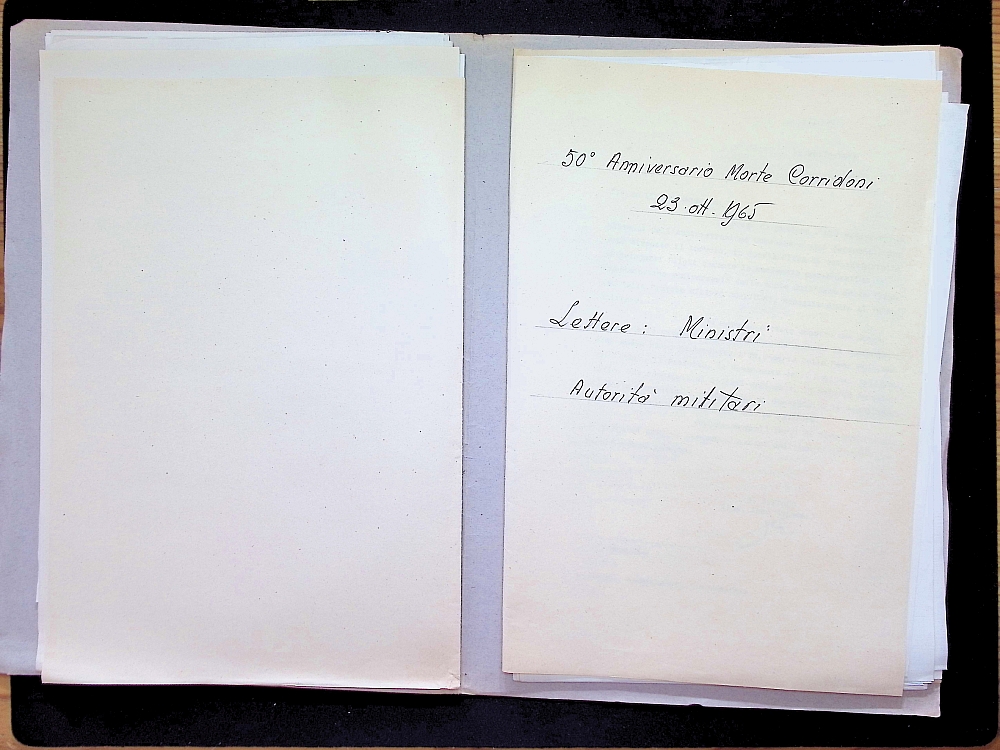 50° Anniversario Morte Corridoni
23 ott. 1965
Lettere : Ministri
Autorità militari